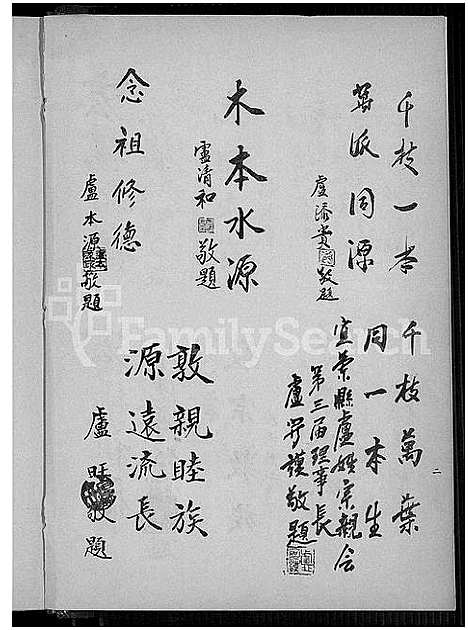 千枝一本
萬派同源
盧添貴敬題
木本水源
盧清和敬題
念祖修德
盧本源敬題
千枝萬葉
同一本生
宜蘭縣盧姓宗親會
第三届理事長
盧 謨敬題
敦親睦族
源遠流長
盧旺敬題
二
FamilySearch